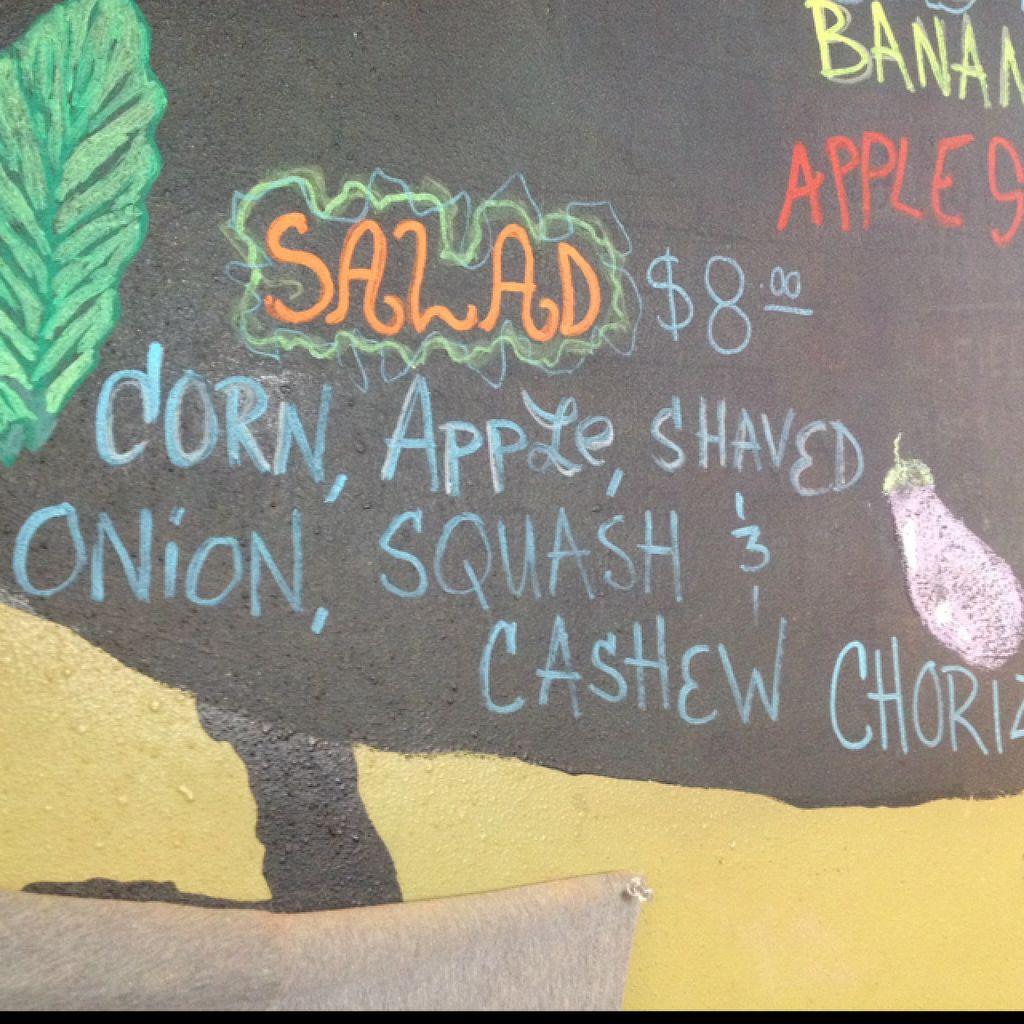 BANAN
APPLES
SALAD $8.00
CORN, APPLE, SHAVED
ONION, SQUASH &
CASHEW CHORIZ